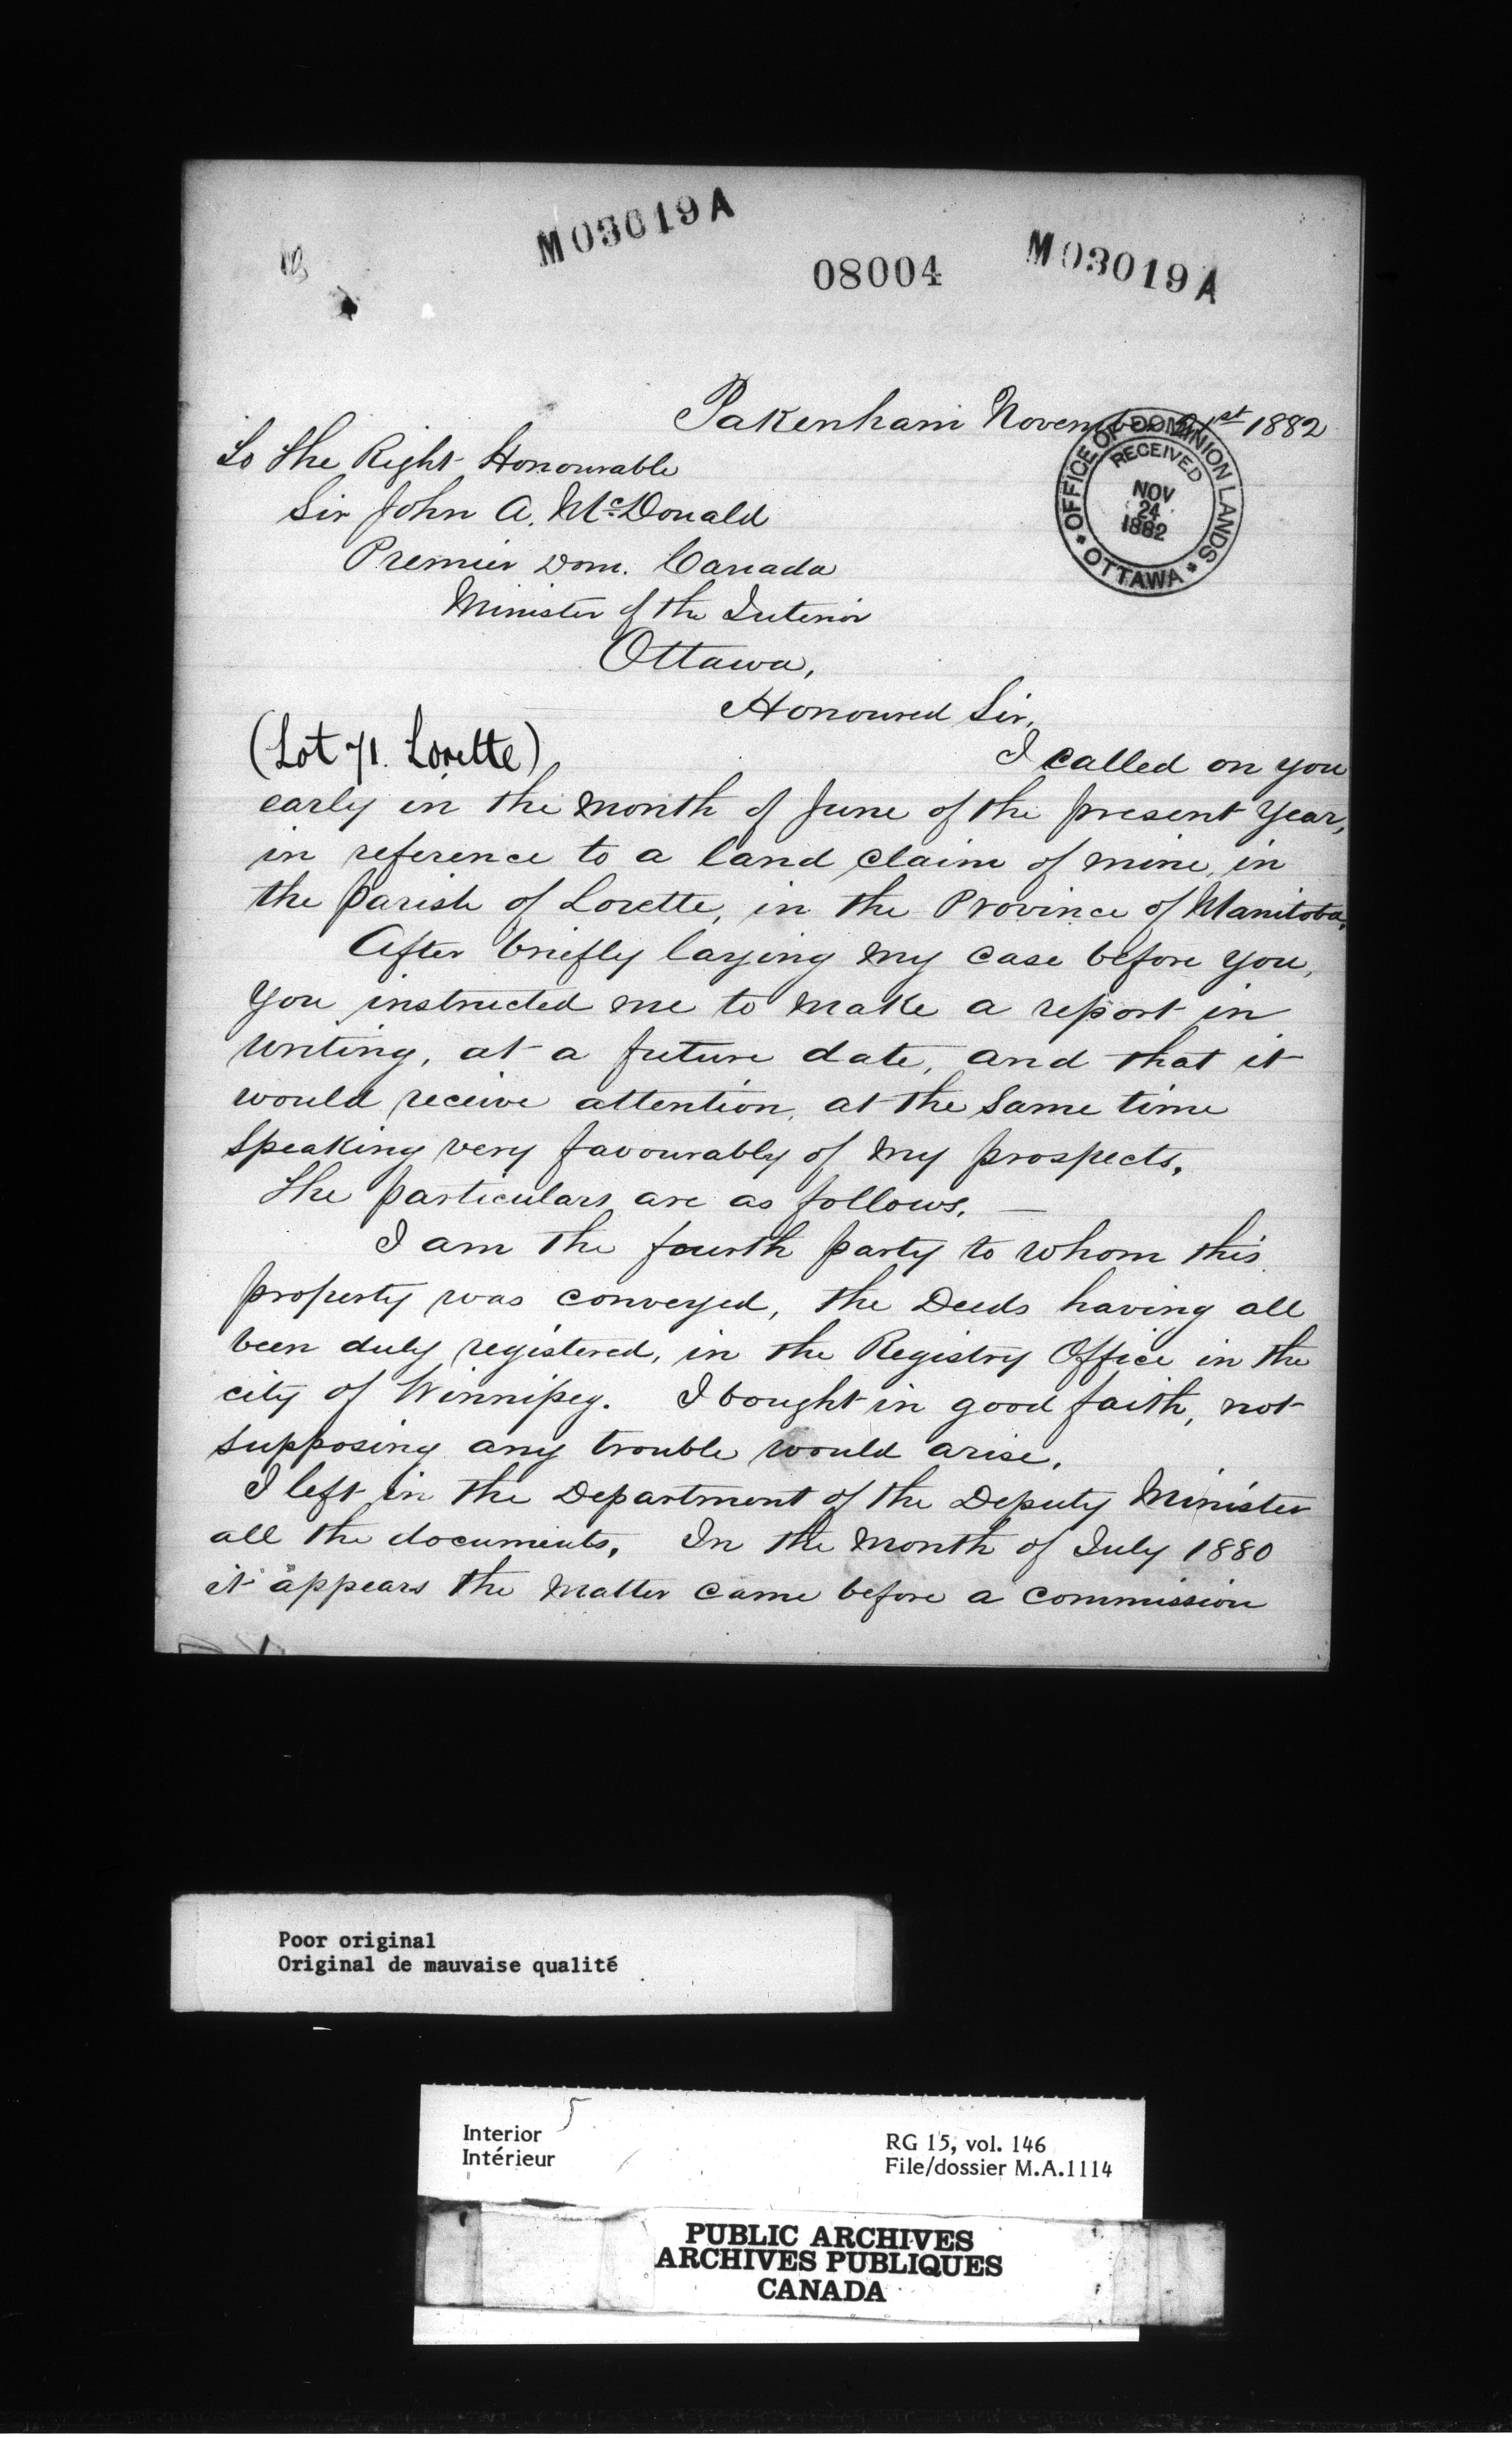 M03019A
08004
M03019A
Pakenham November 21st 1882
OFFICE OF DOMINION LANDS
RECEIVED
NOV
24
1882
* OTTAWA *
To The Right Honourable
Sir John A. McDonald
Premier Dom. Canada
Minister of the Interior
Ottawa,
Honoured Sir,
(Lot 71. Lorette)
I called on you
early in the month of June of the present year,
in reference to a land claim of mine, in
the parish of Lorette, in the Province of Manitoba.
After briefly laying my case before you,
you instructed me to make a report in
writing, at a future date, and that it
would receive attention, at the same time
speaking very favourably of my prospects.
The particulars are as follows. —
I am the fourth party to whom this
property was conveyed, the Deeds having all
been duly registered, in the Registry Office in the
city of Winnipeg. I bought in good faith, not
supposing any trouble would arise.
I left in the Department of the Deputy Minister
all the documents. In the month of July 1880
it appears the matter came before a commission
Poor original
Original de mauvaise qualité
Interior 5
Intérieur
RG 15, vol. 146
File/dossier M.A.1114
PUBLIC ARCHIVES
ARCHIVES PUBLIQUES
CANADA